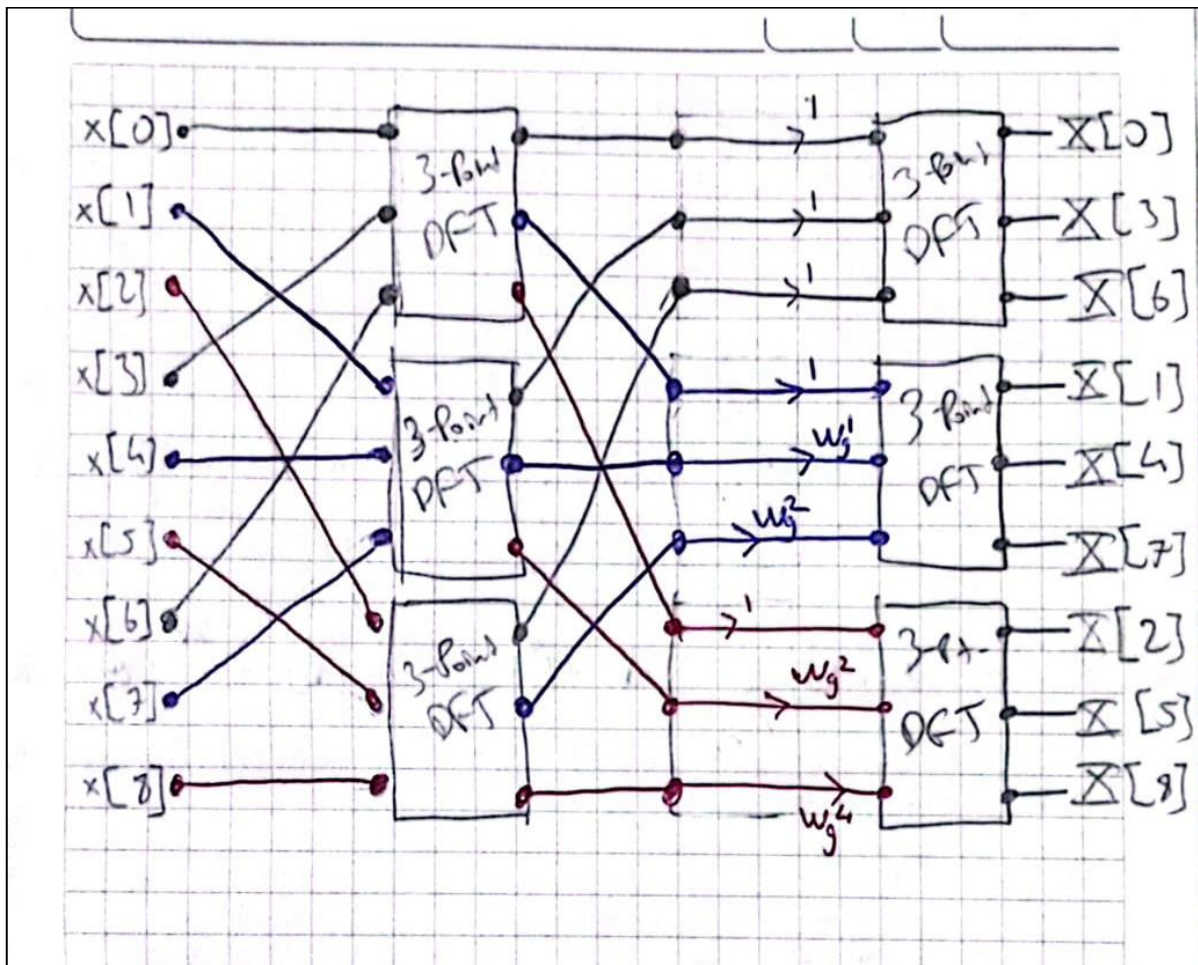 x[0]
x[1]
x[2]
x[3]
x[4]
x[5]
x[6]
x[7]
x[8]
3-Point
DFT
3-Point
DFT
3-Point
DFT
1
1
1
1
W₉¹
W₉²
1
W₉²
W₉⁴
3-Point
DFT
3-Point
DFT
3-Pt.
DFT
X[0]
X[3]
X[6]
X[1]
X[4]
X[7]
X[2]
X[5]
X[8]